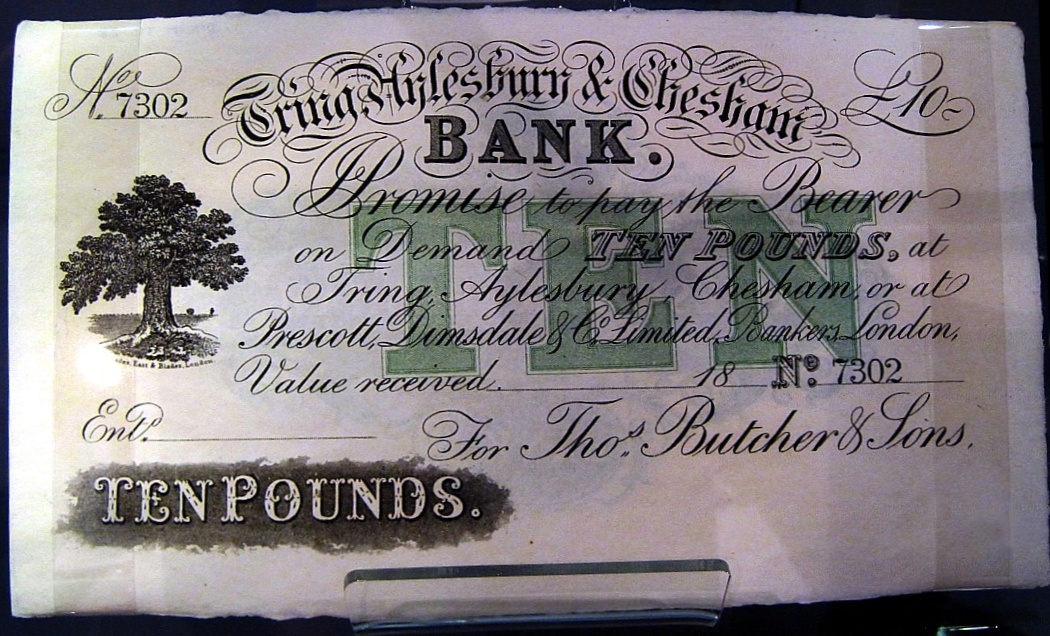 No. 7302
£10-
Tring, Aylesbury & Chesham
BANK.
Promise to pay the Bearer
on Demand TEN POUNDS, at
Tring, Aylesbury, Chesham, or at
Prescott, Dimsdale & Co. Limited, Bankers, London,
Value received. 18 No. 7302
TEN
East & Blades, London.
Entd.
For Thos. Butcher & Sons.
TEN POUNDS.